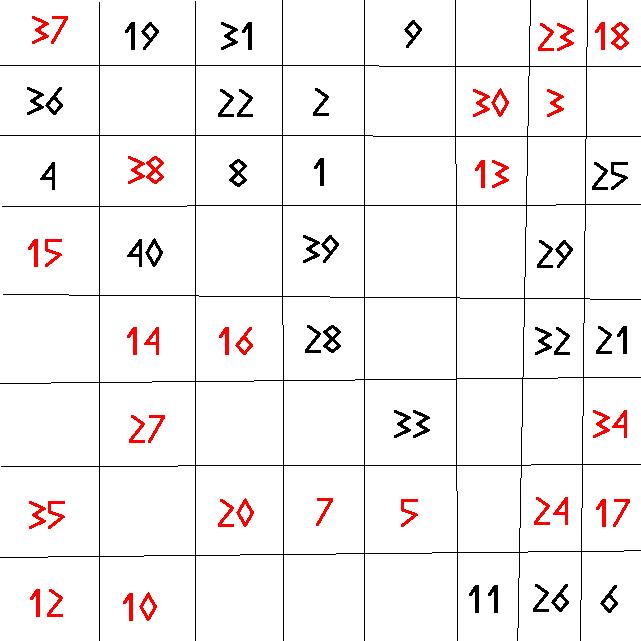 37 19 31 9 23 18
36 22 2 30 3
4 38 8 1 13 25
15 40 39 29
14 16 28 32 21
27 33 34
35 20 7 5 24 17
12 10 11 26 6